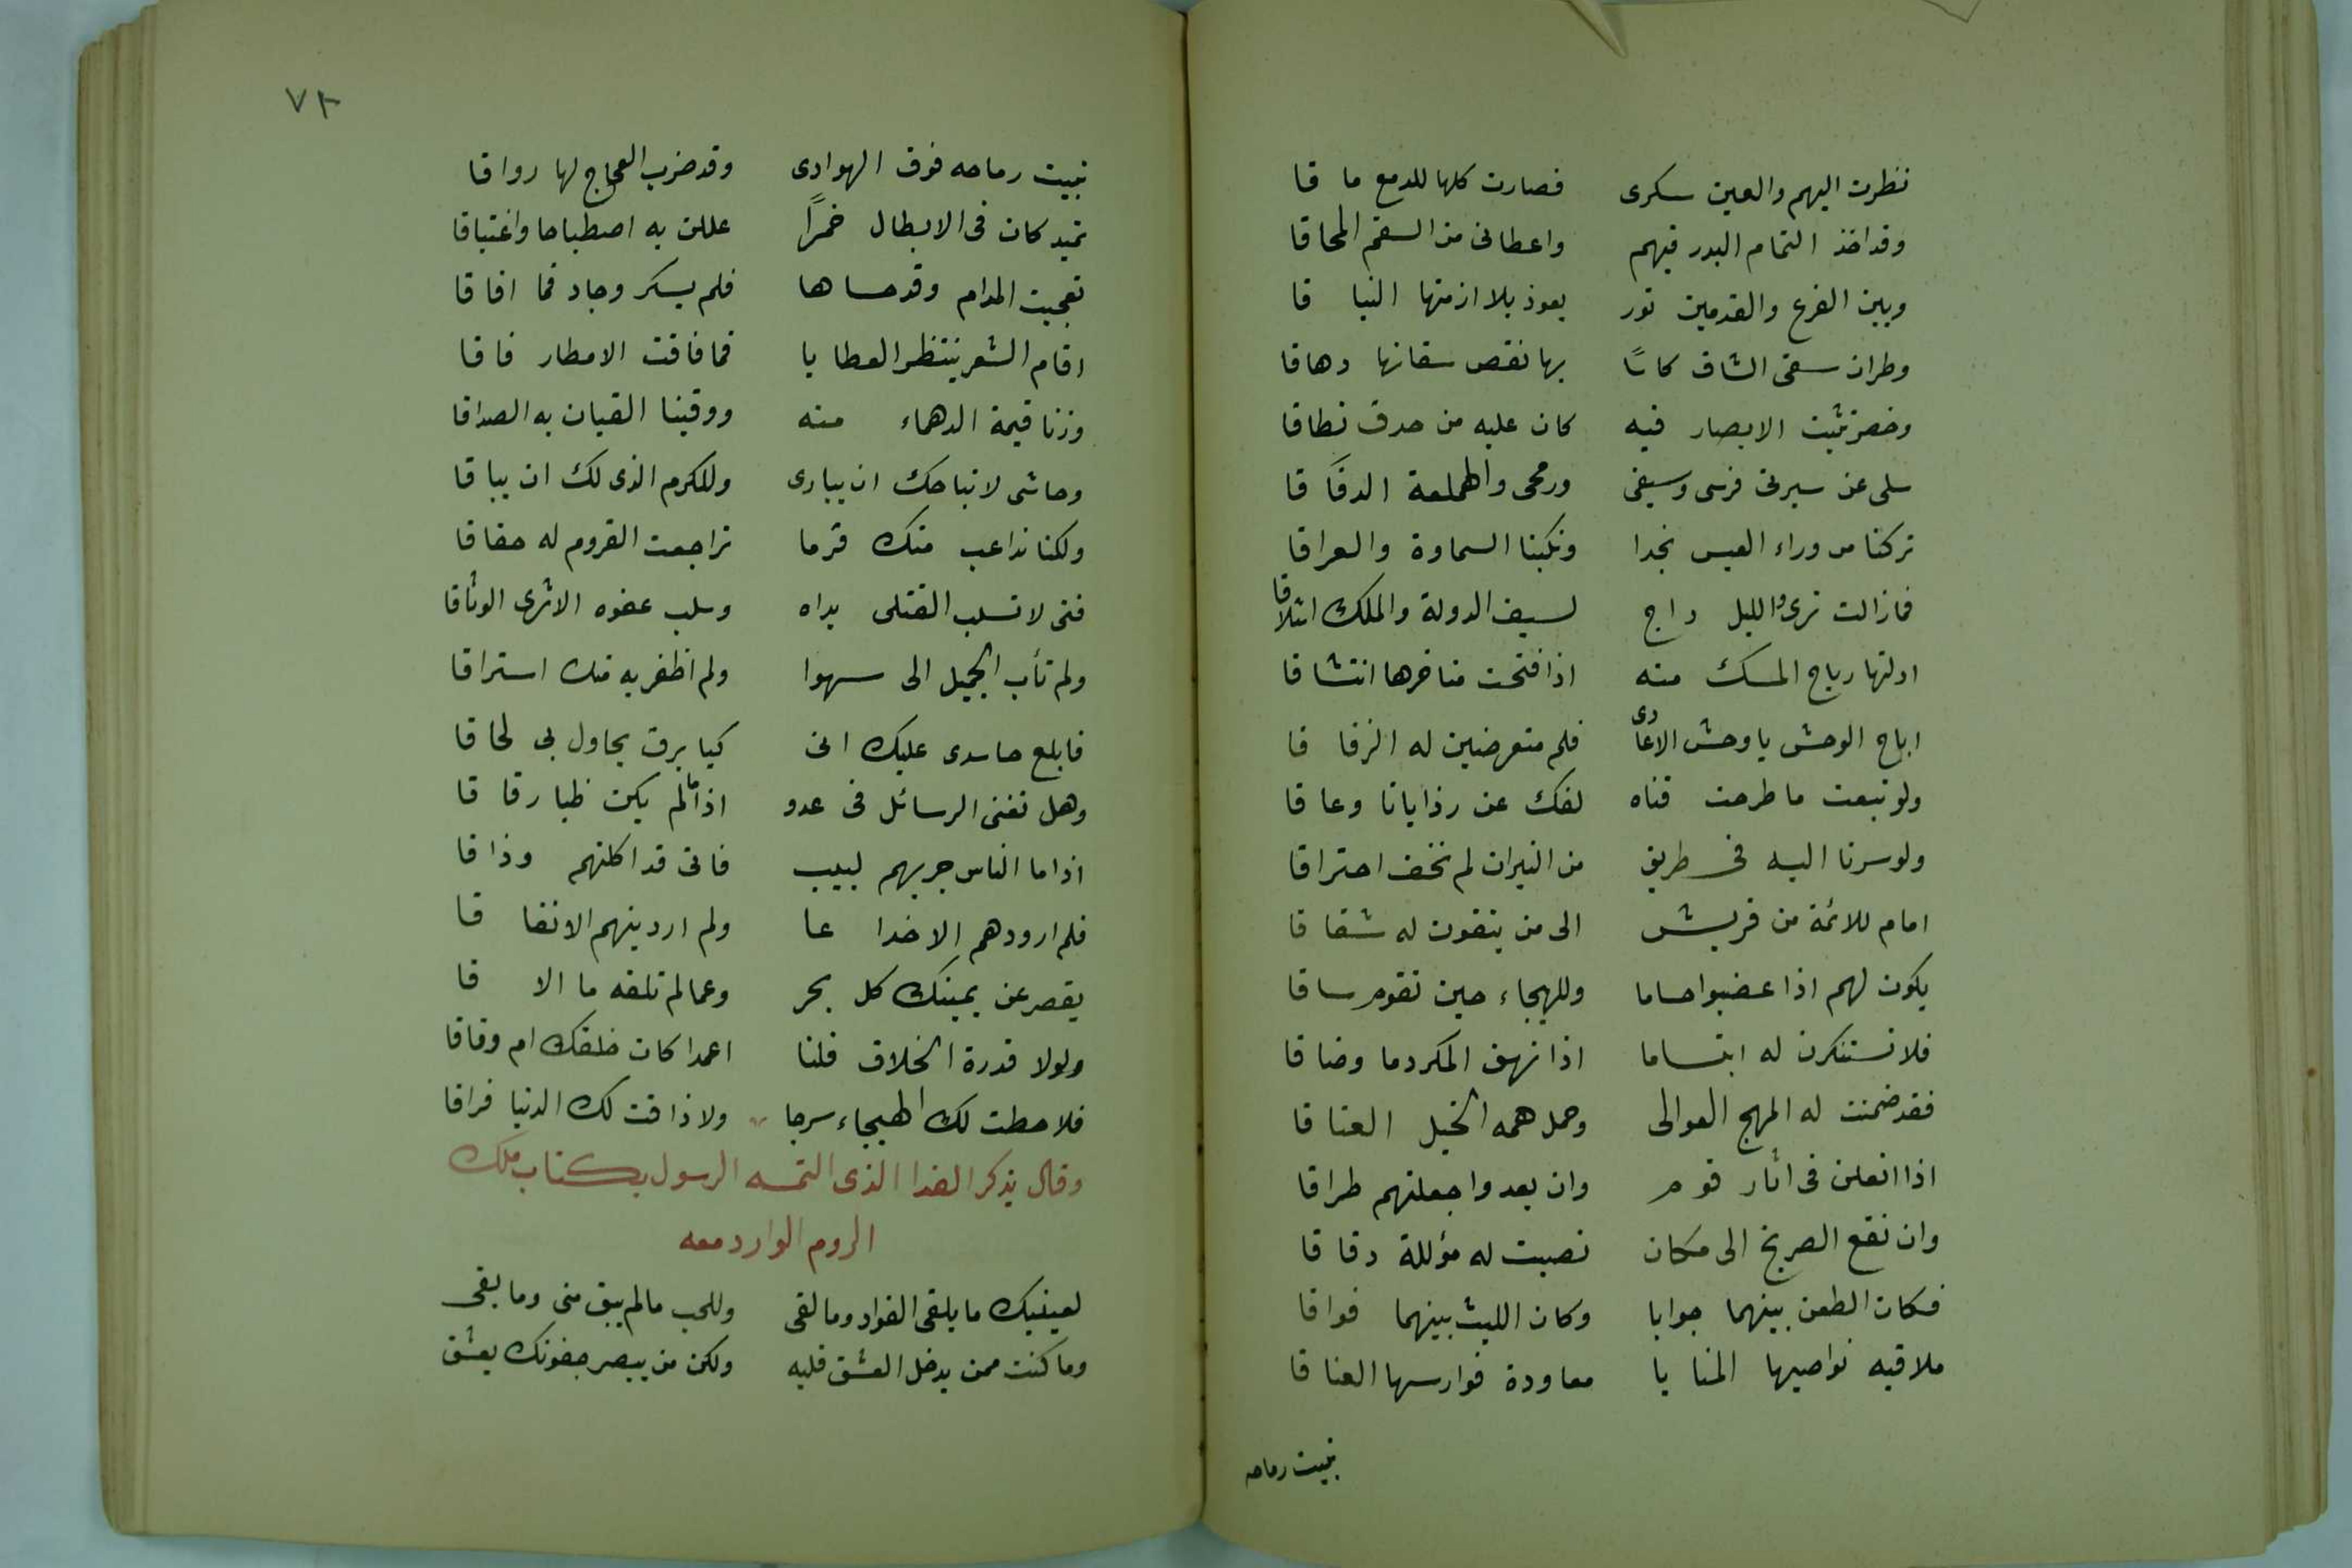 نظرت اليهم والعين سكرى فصارت كلها للدمع ماقا
وقد اخذ التمام البدر فيهم واعطانى من السقم المحاقا
وبين الفرع والقدمين نور يعوذ بلا ازمتها النياقا
وطرف ان سقى الشاق كاسًا بها نقص سقانها دهاقا
وخصر تثبت الابصار فيه كان عليه من حدق نطاقا
سلى عن سيرتى فرسى وسيفى ورمحى والهملعة الدفاقا
تركنا من وراء العيس نجدا ونكبنا السماوة والعراقا
فما زالت ترى والليل داج لسيف الدولة والملك ائتلاقا
ادلتها رياح المسك منه اذا فتحت مناخرها انتشاقا
اباح الوحش يا وحش الاعادى فلم متعرضين له الرفاقا
ولو تبعت ما طرحت قناه لفك عن رذايانا وعاقا
ولو سرنا اليه فى طريق من النيران لم نخف احتراقا
امام للائمة من قريش الى من يتقون له شقاقا
يكون لهم اذا غضبوا حساما وللهيجاء حين تقوم ساقا
فلا تستنكرن له ابتساما اذا نهق المكر دما وضاقا
فقد ضمنت له المهج العوالى وحمل همه الخيل العتاقا
اذا انعلن فى اثار قوم وان بعدوا جعلتهم طراقا
وان نقع الصريخ الى مكان نصبت له مؤللة دقاقا
فكان الطعن بينهما جوابا وكان الليث بينهما فواقا
ملاقيه نواصيها المنايا معاودة فوارسها العناقا
تبيت رماحه
٧٣
تبيت رماحه فوق الهوادى وقد ضرب العجاج لها رواقا
تميد كان فى الابطال خمرًا عللن به اصطباحا واغتباقا
تعجبت المدام وقد حساها فلم يسكر وجاد فما افاقا
اقام الشعر ينتظر العطايا فما فاقت الامطار فاقا
وزنا قيمة الدهماء منه ووقينا القيان به الصداقا
وحاشى لا تباحك ان يبارى وللكرم الذى لك ان يباقا
ولكنا نداعب منك قرما تراجعت القروم له حقاقا
فتى لا تسلب القتلى يداه وسلب عفوه الاشرى الوثاقا
ولم تأب الجميل الى سهوا ولم اظفر به منك استراقا
فابلغ حاسدى عليك انى كبا برق يحاول بى لحاقا
وهل تغنى الرسائل فى عدو اذا ما لم يكن ظبا رقاقا
اذا ما الناس جربهم لبيب فانى قد اكلتهم وذاقا
فلم ار ودهم الا خداعا ولم ار دينهم الا نفاقا
يقصر عن يمينك كل بحر وعما لم تلقه ما الاقا
ولولا قدرة الخلاق قلنا اعمدا كان خلقك ام وفاقا
فلا حطت لك الهيجاء سرجا ولا ذاقت لك الدنيا فراقا
وقال يذكر الفدا الذى التمسه الرسول بكتاب ملك
الروم الوارد معه
لعينيك ما يلقى الفواد وما لقى وللحب مالم يبق منى وما بقى
وما كنت ممن يدخل العشق قلبه ولكن من يبصر جفونك يعشق